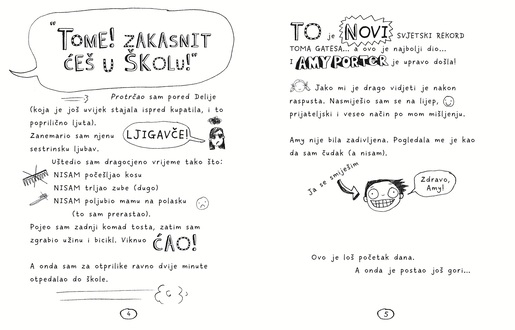 "TOME! ZAKASNIT
ĆEŠ U ŠKOLU!"
Protrčao sam pored Delije
(koja je još uvijek stajala ispred kupatila, i to
poprilično ljuta).
Zanemario sam njenu
sestrinsku ljubav.
LJIGAVČE!
Uštedio sam dragocjeno vrijeme tako što:
NISAM počešljao kosu
NISAM trljao zube (dugo)
NISAM poljubio mamu na polasku
(to sam prerastao).
Pojeo sam zadnji komad tosta, zatim sam
zgrabio užinu i bicikl. Viknuo ĆAO!
A onda sam za otprilike ravno dvije minute
otpedalao do škole.
4
TO je NOVI SVJETSKI REKORD
TOMA GATESA... a ovo je najbolji dio...
I AMY PORTER je upravo došla!
Jako mi je drago vidjeti je nakon
raspusta. Nasmiješio sam se na lijep,
prijateljski i veseo način po mom mišljenju.
Amy nije bila zadivljena. Pogledala me je kao
da sam čudak (a nisam).
Ja se smiješim
Zdravo,
Amy!
Ovo je loš početak dana.
A onda je postao još gori...
5